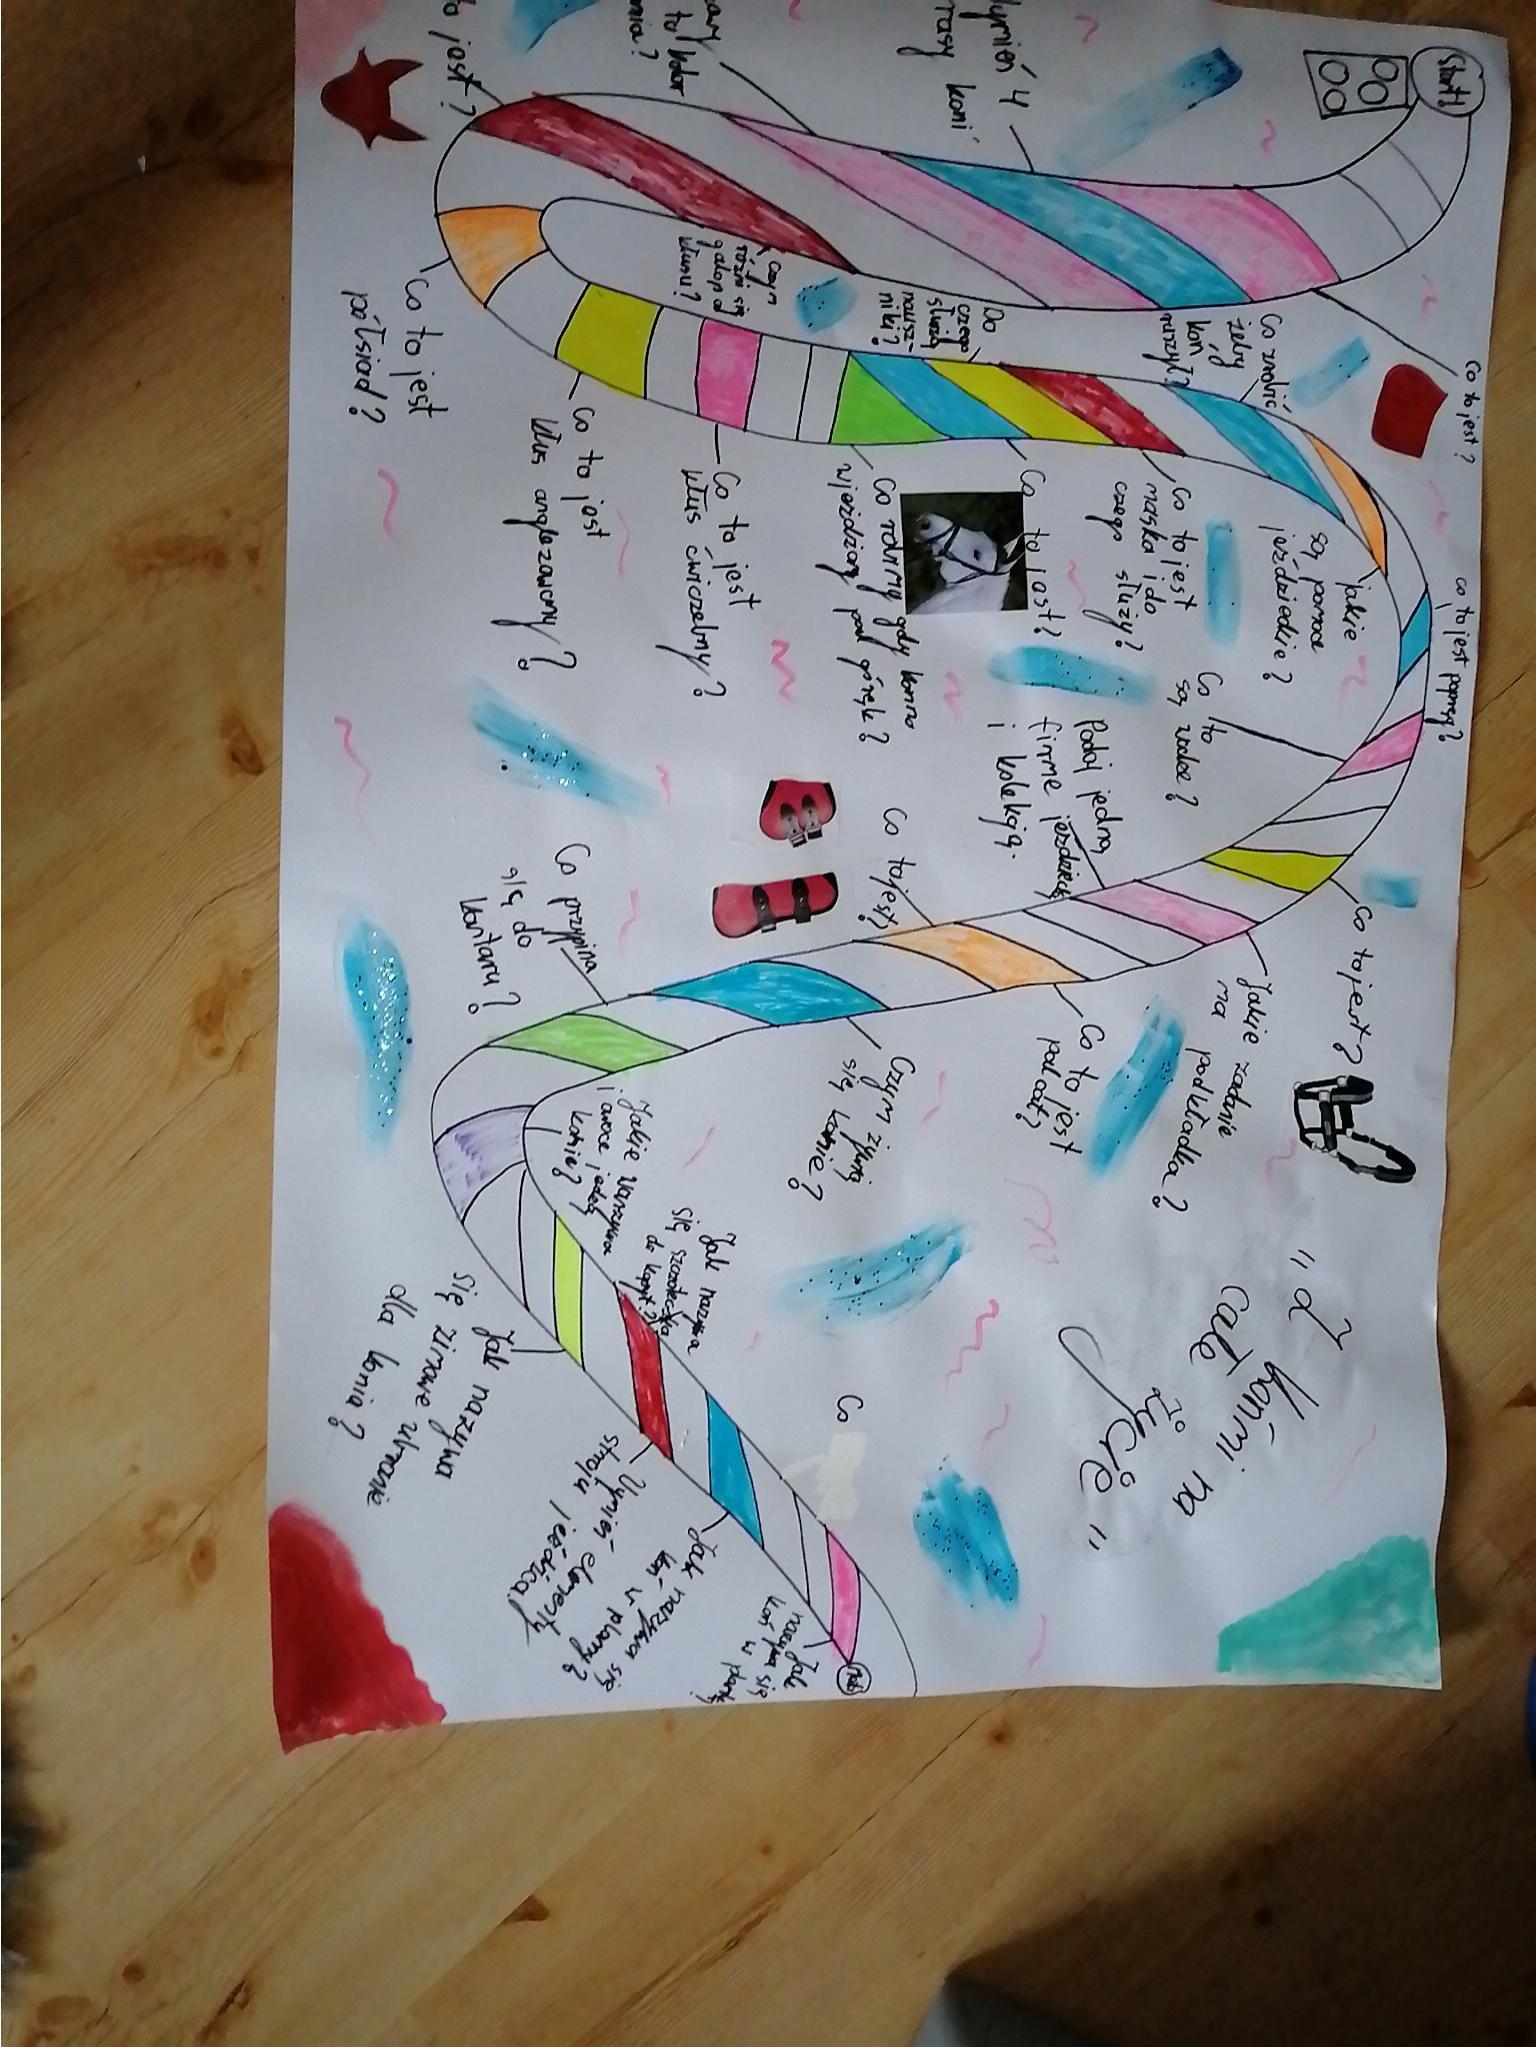 Start!
Co to jest?
Wymień 4
rasy koni
to kolor
jest?
Co to jest
półsiad?
Co to jest
kłus anglezowany?
Co to jest
kłus ćwiczebny?
Czym
różni się
galop od
kłusu?
Co robimy gdy konno
wjeżdżamy pod górkę?
Do
czego
służą
nausz-
niki?
Co to jest?
Co to jest
maska i do
czego służy?
Co zrobić
żeby
koń
ruszył?
jakie
są pomoce
jeździeckie?
co to jest popręg?
Co to
są wodze?
Co to jest?
Podaj jedną
firmę jeździecką
i kolekcję.
Jakie zadanie
ma podkładka?
Co to jest?
Co to jest
padcat?
Czym żywią
się konie?
Co przypina
się do
kantaru?
Jakie warzywa
i owoce jedzą
konie?
Jak nazywa
się zimowe ubranie
dla konia?
Jak nazywa
się szczoteczka
do kopyt?
Wymień elementy
stroju jeźdźca.
Jak nazywa się
koń w plamy?
Co
Jak
nazywa się
koń w plamki?
Meta
"Z końmi na
całe
życie"